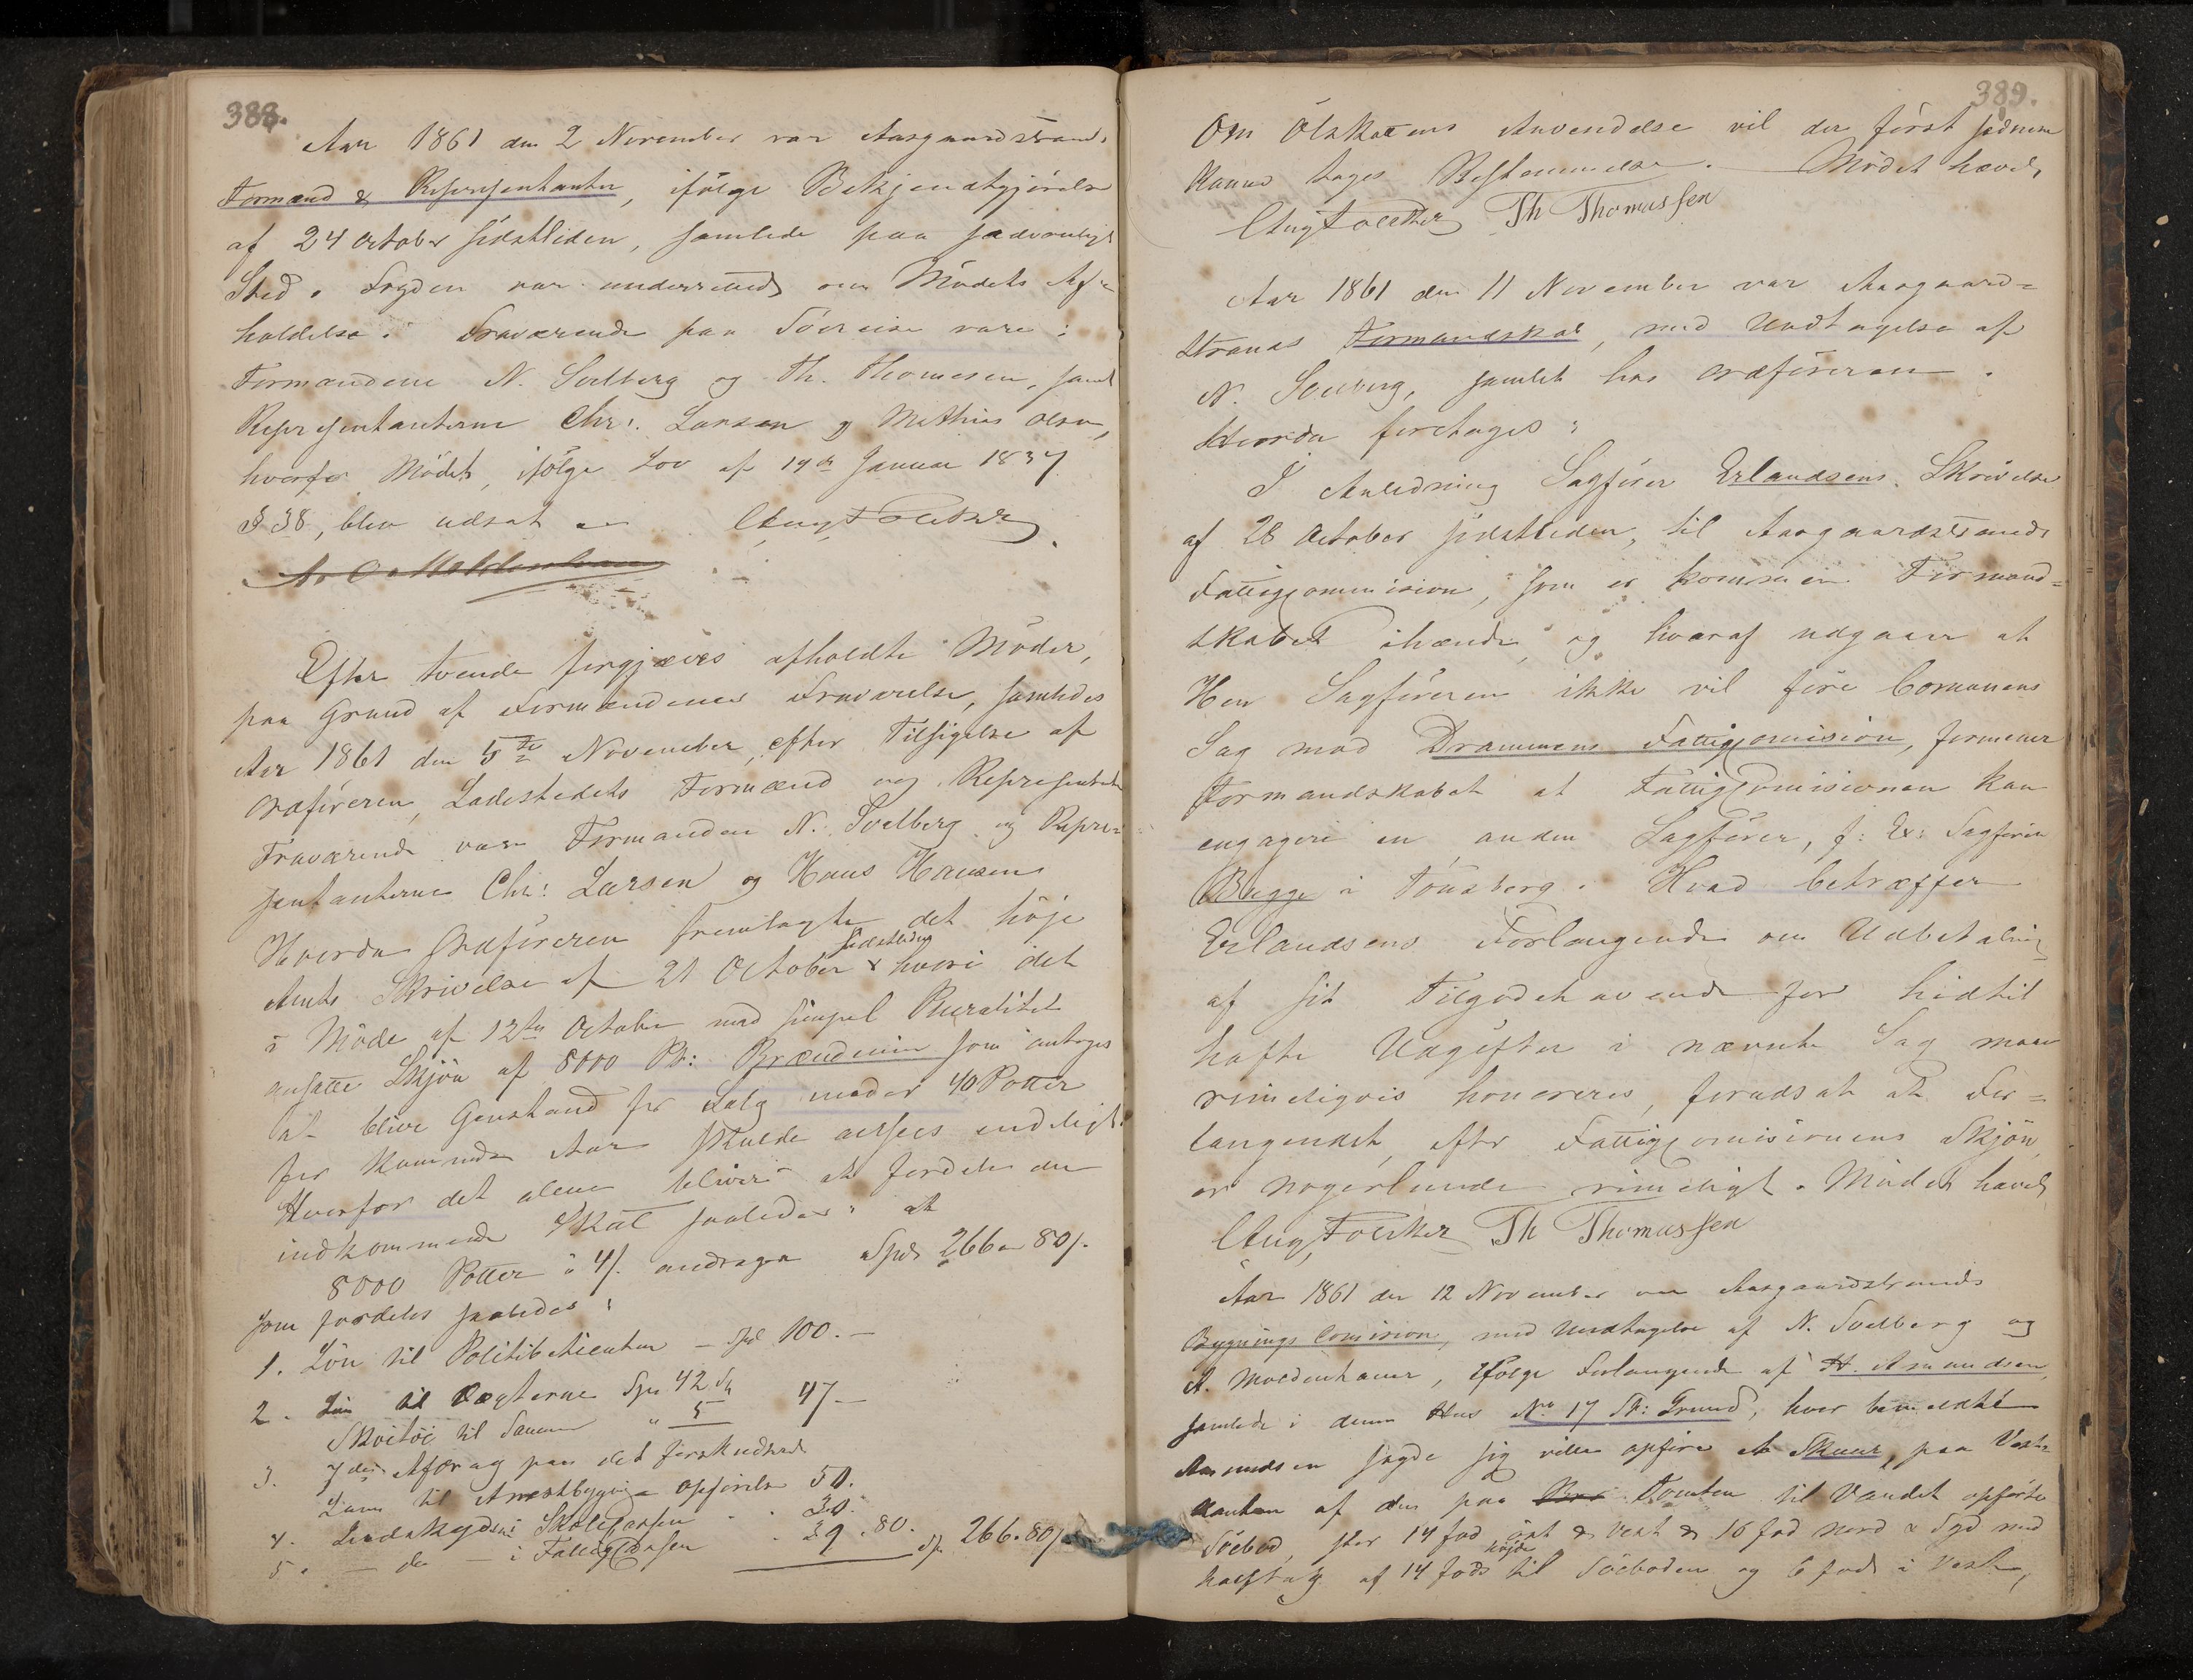 388.
Aar 1861 den 2 November var Aasgaardstrands
Formænd & Representanter, ifølge Bekjendtgjørelse
af 24 October sidstleden, samlede paa sædvanligt
Sted. Fogden var underrettet om Mødets Af-
holdelse. Fraværende paa Søereise vare:
Formændene N. Soelberg og Th. Thomesen, samt
Representanterne Chr: Larsen og Mathias Olsen,
hvorfor Mødet, ifølge Lov af 14de Januar 1837
§ 38, blev udsat
Aug Foelker
A. C. Moldenhauer
Efter tvende forgjæves afholdte Møder,
paa Grund af Formændenes Fraværelse, samledes
Aar 1861 den 5te November, efter Tilsigelse af
Ordføreren, Ladestedets Formænd og Represent
Fraværende vare Formanden N. Soelberg og Repre-
sentanterne Chr: Larsen og Hans Hansen
Hvorda Ordføreren fremlagte det høje
Amts Skrivelse af 21 October sidstleden hvori det
i Møde af 12te October med simpel Pluralitet
ansatte Skjøn af 8000 Pt: Brændeviin som antages
at blive Gjenstand for Salg under 40 Potter
for kommende Aar skulde ansees endeligt.
Hvorfor det alene bliver at fordele den
indkommende Skat saaledes: at
8000 Potter à 4/. andrager Spd 266 80/.
som fordeles saaledes:
1. Løn til Politibetienten - Spd 100. -
2. Løn til Vægterne Spd 42
Skotøi til Samme " 5 47 -
3. 7de Afdrag paa det forskudte
Laan til Arrestbygnings Opførelse 50.
4. Indskydes i Skolecassen " 30.
5. - do - i Fattigcassen " 39. 80. Sp. 266. 80/
389.
Om Ølskattens Anvendelse vil der først sednere
kunne tages Bestemmelse. Mødet hævet,
Aug Foelker Th Thomassen
Aar 1861 den 11 November var Aasgaard=
strands Formandskab, med Undtagelse af
N. Soelberg, samlet hos Ordføreren.
Hvorda foretoges:
I Anledning Sagfører Erlandsens Skrivelse
af 28 October sidstleden, til Aasgaardstrands
Fattigcommision, som er kommen Formand=
skabet ihænde, og hvoraf udgaaer at
Herr Sagføreren ikke vil føre Comunens
Sag mod Drammens Fattigcomision, formener
Formandskabet at Fattigcomisionen kan
engagere en anden Sagfører, f: Ex: Sagfører
Bugge i Tønsberg. Hvad betræffer
Erlandsens Forlangende om Udbetaling
af sit Tilgodehavende for hidtil
hafte Udgifter i nævnte Sag maa
rimeligvis honoreres, forudsat at For=
langendet, efter Fattigcomisionens Skjøn
er nogenlunde rimeligt. Mødet hævet
Aug Foelker Th Thomassen
Aar 1861 den 12 November var Aasgaardstrands
Bygnings Comision, med Undtagelse af N. Soelberg og
A. Moldenhauer, ifølge Forlangende af H. Amundsen
samlede i dennes Huus No 17 St: Grund, hvor bemeldte
Amundsen sagde sig ville opføre et Skuur, paa Vest-
kanten af den paa Tomten til Vandet opførte
Søebod, stor 14 fod øst & Vest & 16 fod Nord & Syd med
halvtag af 14 fods højde til Søeboden og 6 fod i Vest,